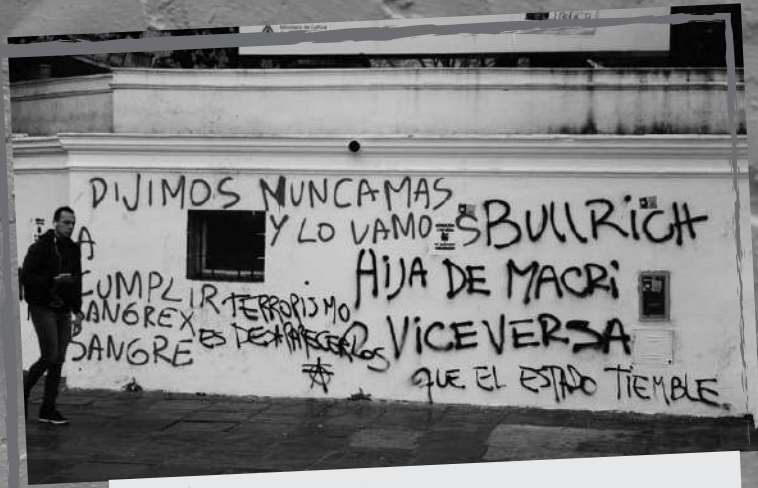 Ministerio de Cultura
DIJIMOS NUNCA MAS
Y LO VAMOS
A
CUMPLIR
SANGRE X
SANGRE
TERRORISMO
ES DESAPARECERLOS
BULLRICH
HIJA DE MACRI
O VICEVERSA
QUE EL ESTADO TIEMBLE.